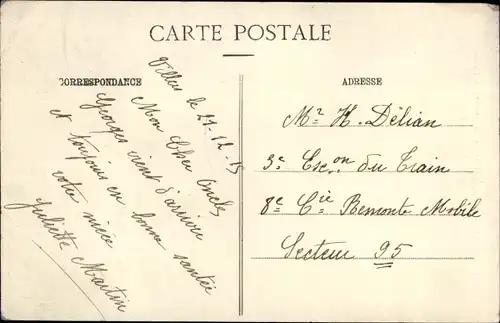 CARTE POSTALE
CORRESPONDANCE
Villers le 21-12-15
Mon Cher Oncle
Georges vient d'arriver
et toujours en bonne santée
votre nièce
Juliette Martin
ADRESSE
Mr H. Délian
3e Escon du Train
8e Cie Remonte Mobile
Secteur 95